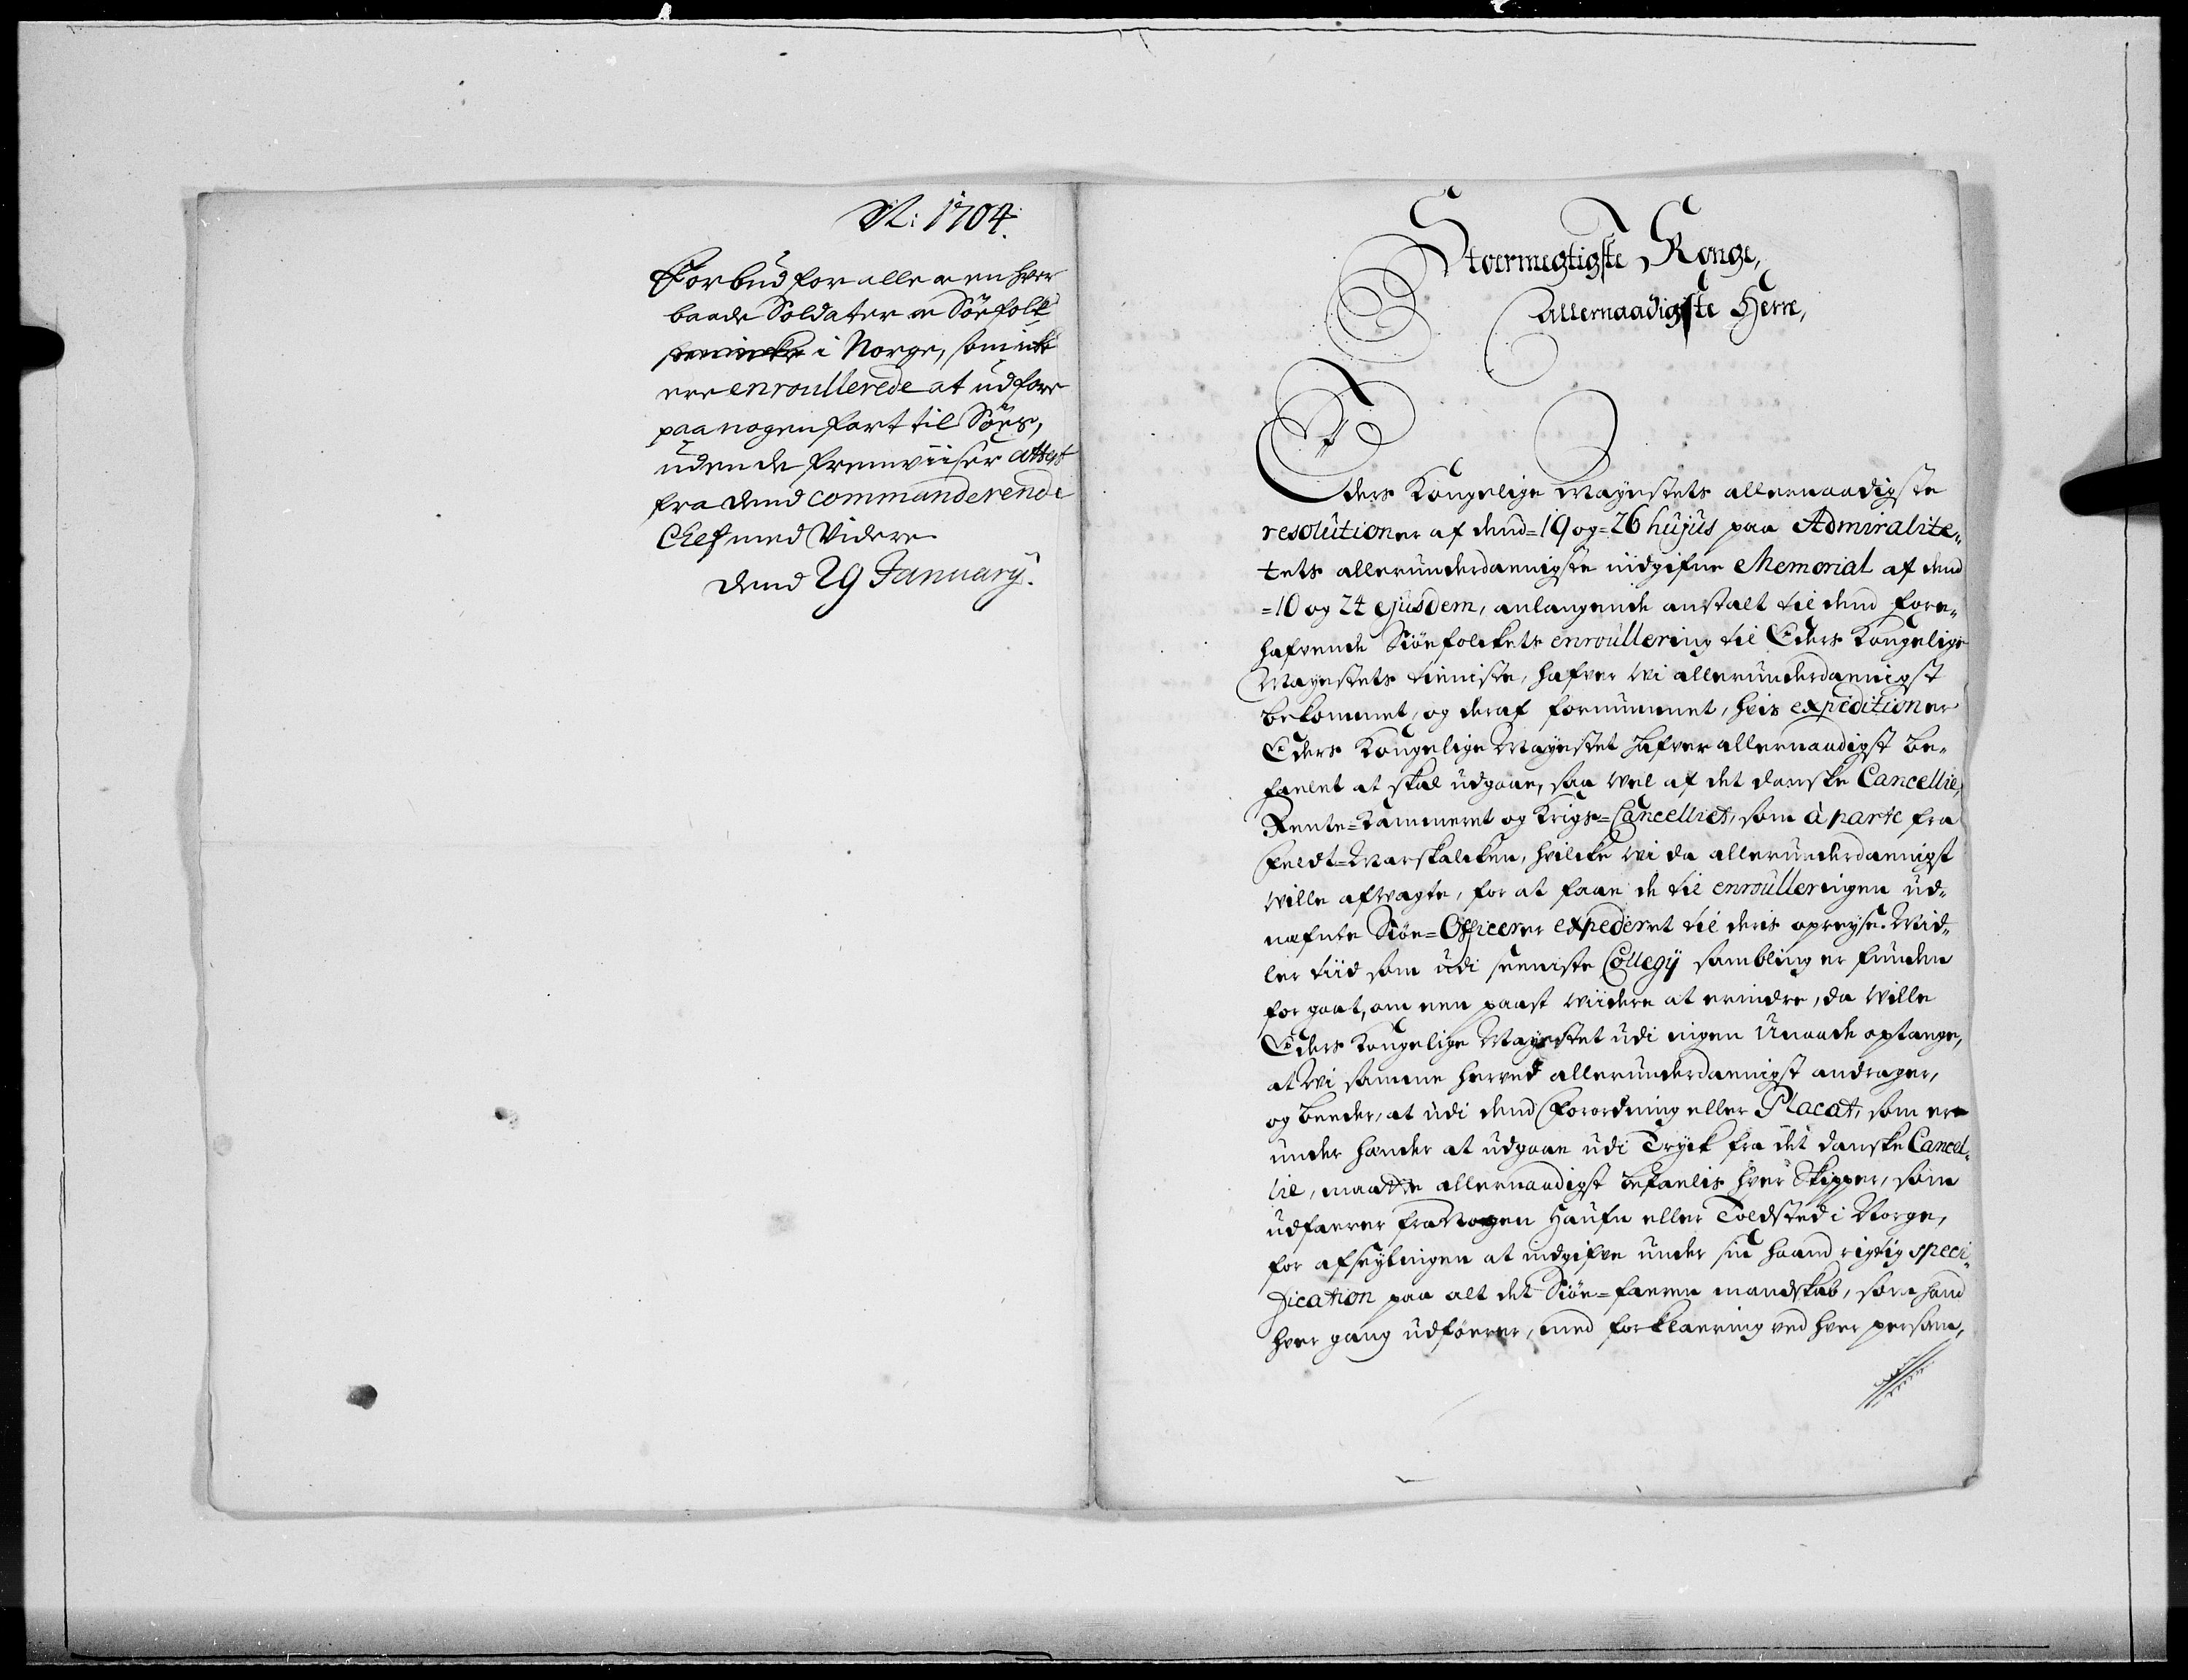 N: 1704.
Forbud for alle og en hver
baade Soldater og Söefolk
i Norge, som icke
ere enroullerede at udfare
paa nogen fart til Söes,
uden de fremviiser attest
fra dend commanderende
Chef med Videre
dend 29 January.
Stoermegtigste Konge,
Allernaadigste Herre,
Eders Kongelige Mayestets allernaadigste
resolutioner af dend=19 og=26 hujus paa Admiralite-
tets allerunderdaenigste indgifne Memorial af dend
=10 og 24 ejusdem, anlangende anstalt til dend fore-
hafvende Siöefolckets enroullering til Eders Kongelige
Mayestets tieniste, hafver wi allerunderdaenigst
bekommet, og deraf fornummet, hvis expeditioner
Eders Kongelige Mayestet hafver allernaadigst be-
faelet at skal udgaae, saa wel af det danske Cancellie,
Rente=Kammeret og Krigs=Cancelliet, som à parte fra
Feldt=Marskalcken, hvilcke wi da allerunderdaenigst
wille afvagte, for at faae de til enroulleringen ud-
nefnte Siöe=Officerer expederet til deris opreyse. Mid-
ler tiid som udi seeniste Collegij sambling er funden
for gaat, om een paast wiidere at erindre, da wille
Eders Kongelige Mayestet udi ingen Unaade optage,
at wi samme herved allerunderdaenigst andrager,
og beeder, at udi dend Forordning eller Placat, som er
under hænder at udgaae udi Tryck fra det danske Cancel-
lie, maatte allernaadigst befaelis hver Skipper, som
udfaerer fra Nogen Haufn eller Toldsted i Norge,
for afseylingen at indgifve under sin haand rigtig speci-
fication paa alt det Siöe=faeren mandskab, som hand
hver gang udföerer, med forklaering ved hver person,